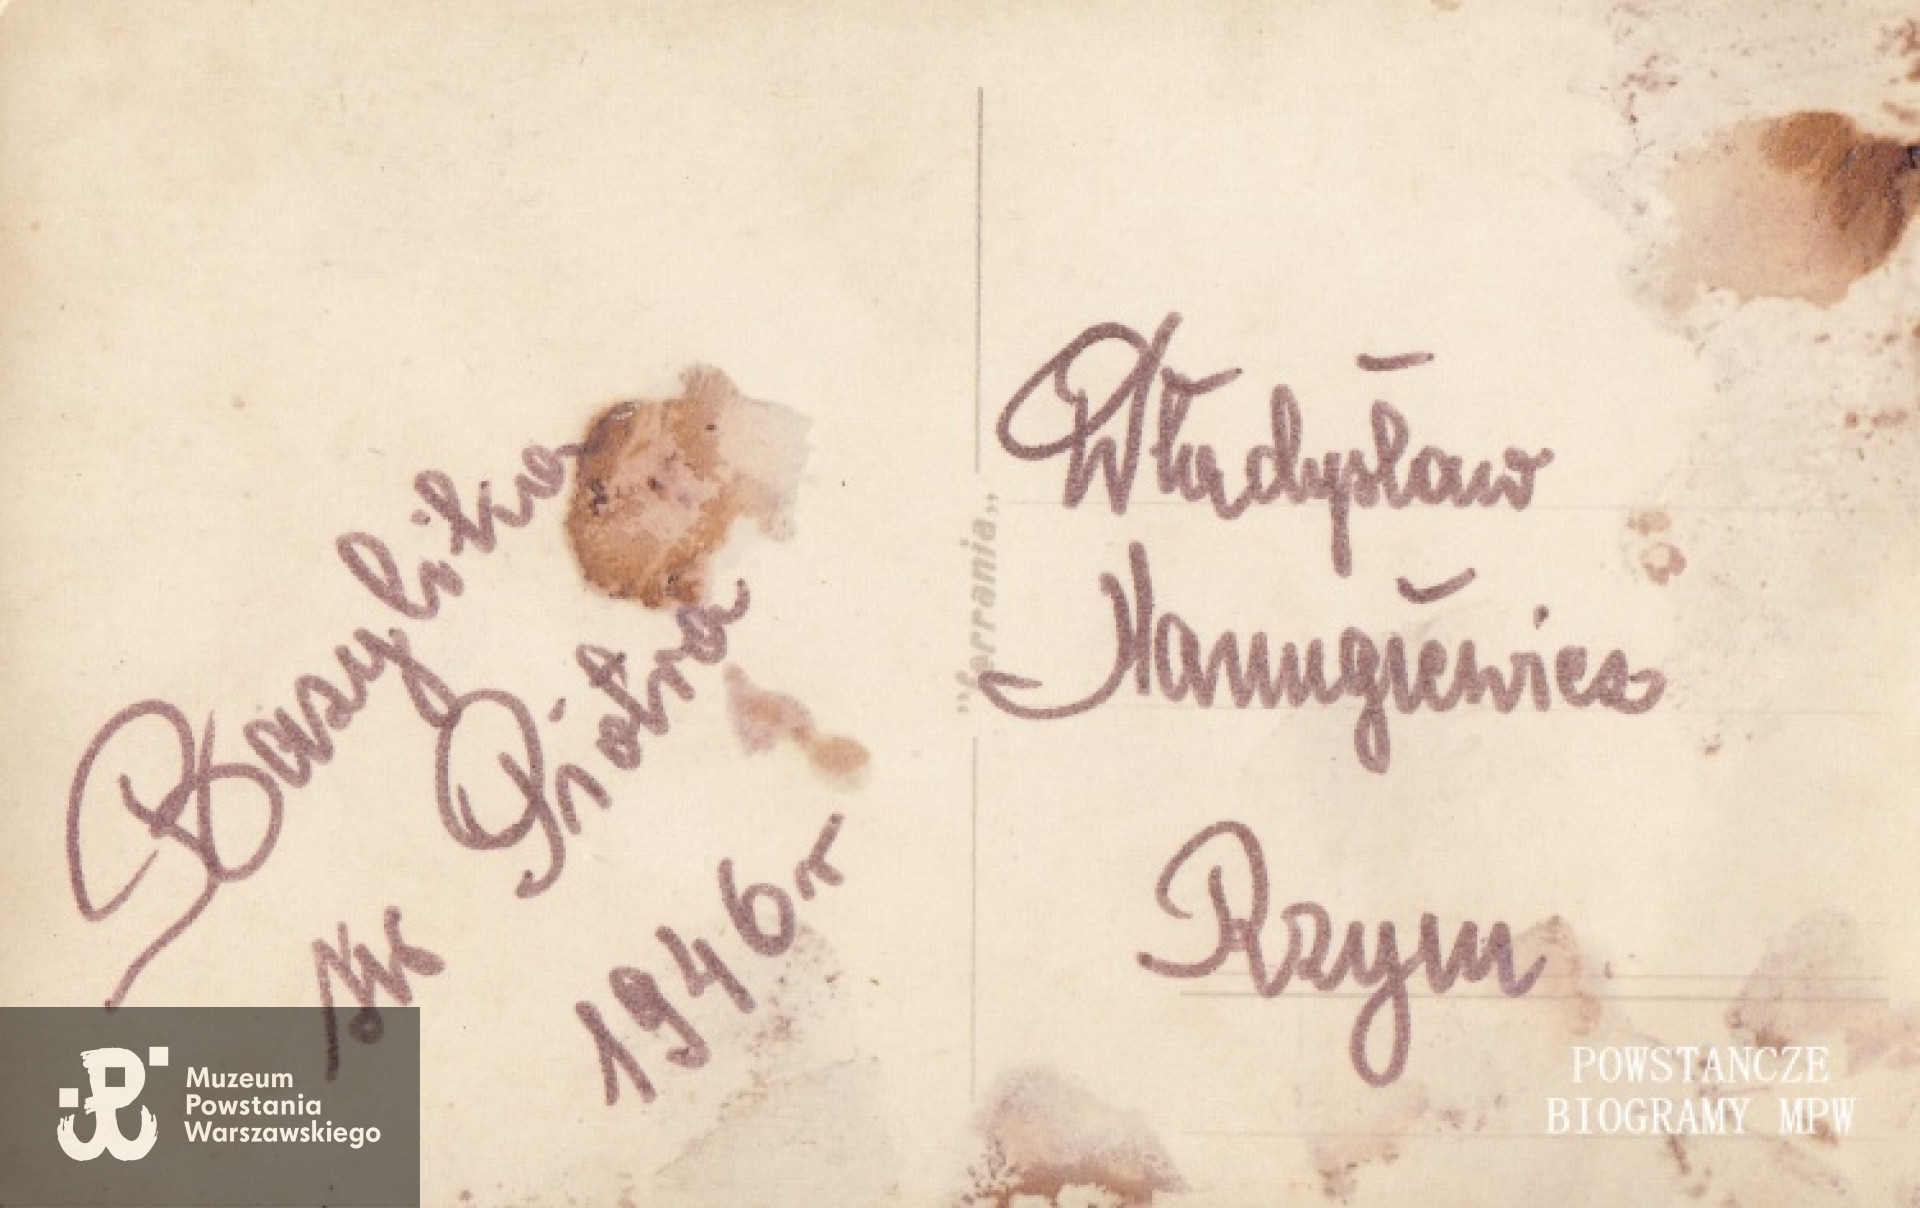 Bazylika
św Piotra
1946 r
„ferrania„
Władysław
Hanugiewicz
Rzym
Muzeum
Powstania
Warszawskiego
POWSTANCZE
BIOGRAMY MPW